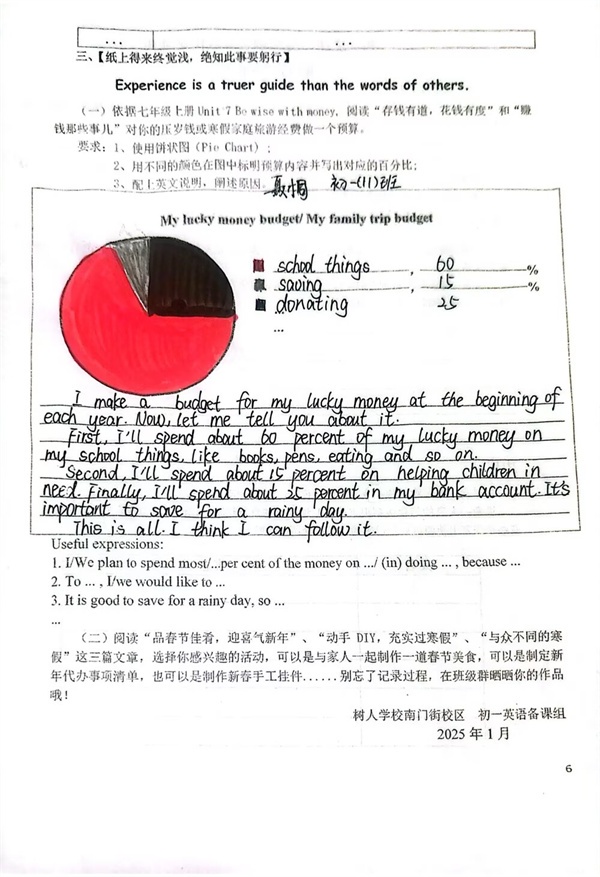 ... ...
三、【纸上得来终觉浅，绝知此事要躬行】
Experience is a truer guide than the words of others.
（一）依据七年级上册 Unit 7 Be wise with money, 阅读“存钱有道，花钱有度”和“赚
钱那些事儿”对你的压岁钱或寒假家庭旅游经费做一个预算。
要求：1、使用饼状图（Pie Chart）；
2、用不同的颜色在图中标明预算内容并写出对应的百分比；
3、配上英文说明，阐述原因。 初一(11)班
My lucky money budget/ My family trip budget
school things , 60 %
saving , 15 %
donating 25
...
I make a budget for my lucky money at the beginning of
each year. Now, let me tell you about it.
First, I'll spend about 60 percent of my lucky money on
my school things, like books, pens, eating and so on.
Second, I'll spend about 15 percent on helping children in
need. Finally, I'll spend about 25 percent in my bank account. It's
important to save for a rainy day.
This is all. I think I can follow it.
Useful expressions:
1. I/We plan to spend most/...per cent of the money on .../ (in) doing ... , because ...
2. To ... , I/we would like to ...
3. It is good to save for a rainy day, so ...
...
（二）阅读“品春节佳肴，迎喜气新年”、“动手 DIY，充实过寒假”、“与众不同的寒
假”这三篇文章，选择你感兴趣的活动，可以是与家人一起制作一道春节美食，可以是制定新
年代办事项清单，也可以是制作新春手工挂件......别忘了记录过程，在班级群晒晒你的作品
哦！
树人学校南门街校区 初一英语备课组
2025 年 1 月
6